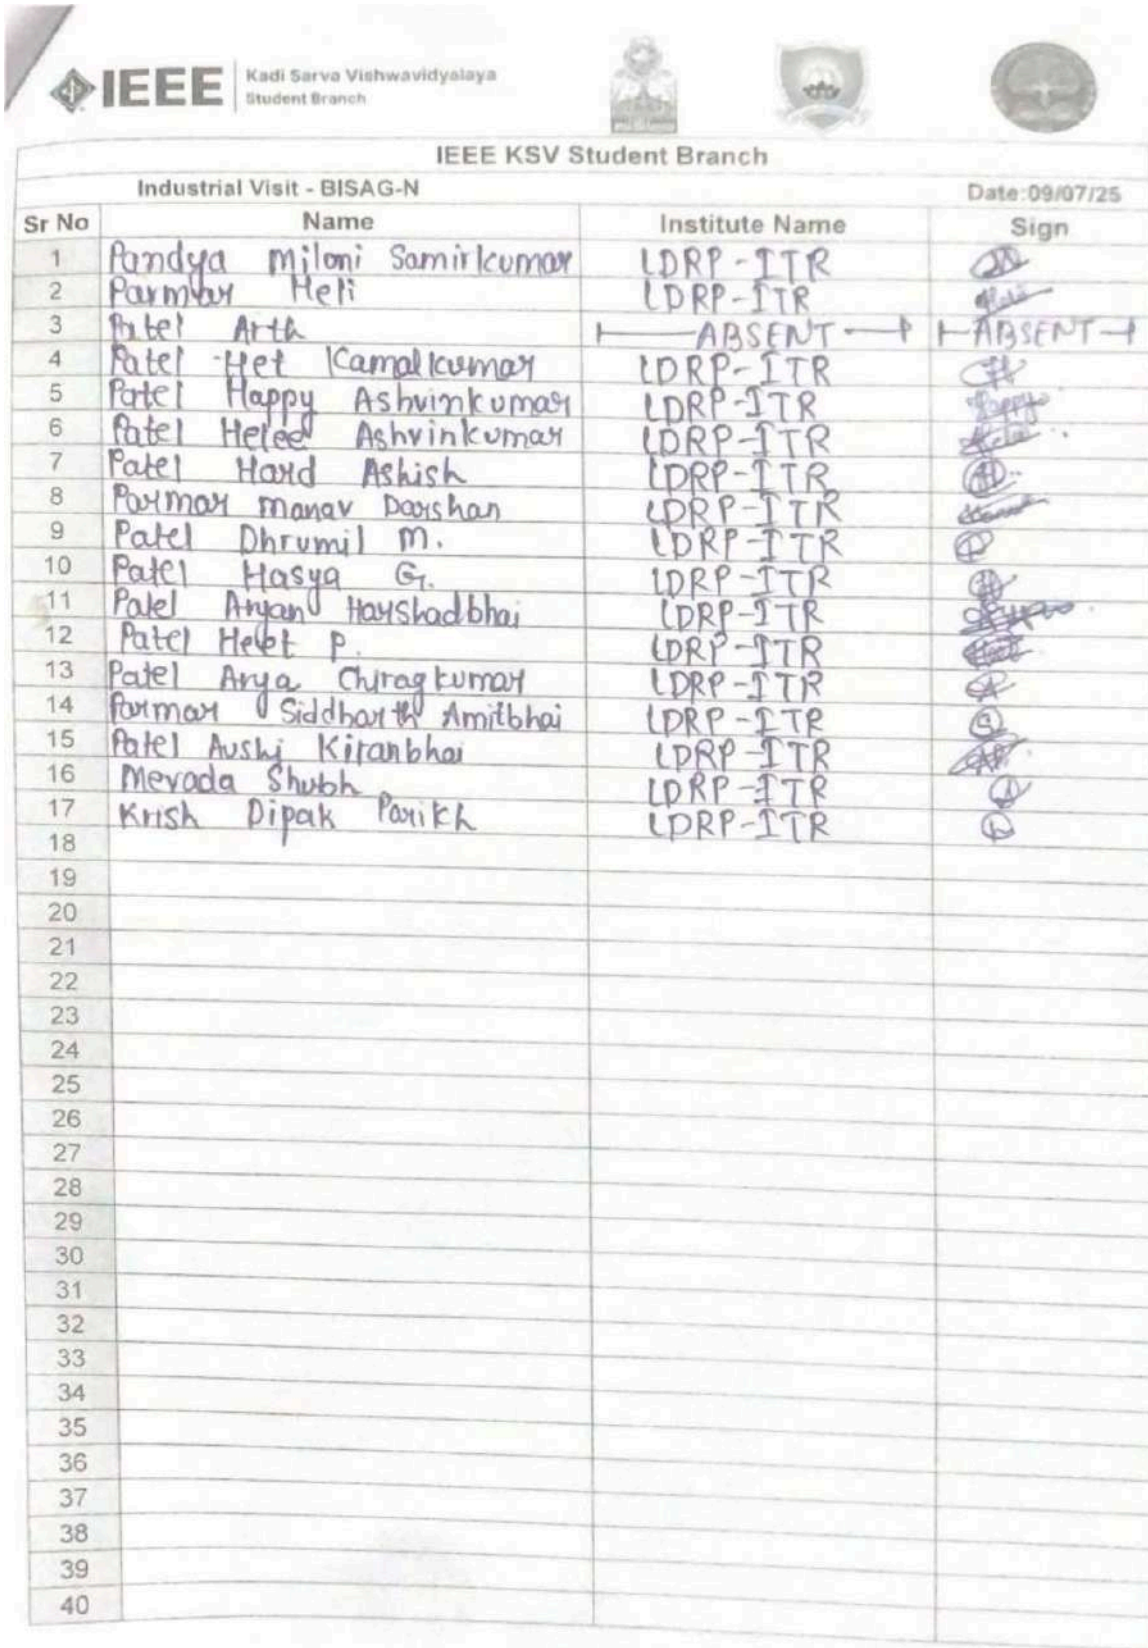 IEEE Kadi Sarva Vishwavidyalaya
Student Branch
IEEE KSV Student Branch
Industrial Visit - BISAG-N Date:09/07/25
Sr No Name Institute Name Sign
1 Pandya Miloni Samirkumar LDRP-ITR
2 Parmar Heli LDRP-ITR
3 Patel Arth ABSENT ABSENT
4 Patel Het Kamalkumar LDRP-ITR
5 Patel Happy Ashvinkumar LDRP-ITR Happy
6 Patel Helee Ashvinkumar LDRP-ITR
7 Patel Hard Ashish LDRP-ITR
8 Parmar Manav Darshan LDRP-ITR
9 Patel Dhrumil M. LDRP-ITR
10 Patel Hasya G. LDRP-ITR
11 Patel Aryan Harshadbhai LDRP-ITR
12 Patel P. LDRP-ITR
13 Patel Arya Chiragkumar LDRP-ITR
14 Parmar Siddharth Amitbhai LDRP-ITR
15 Patel Aushi Kiranbhai LDRP-ITR
16 Mevada Shubh LDRP-ITR
17 Krish Dipak Parikh LDRP-ITR
18
19
20
21
22
23
24
25
26
27
28
29
30
31
32
33
34
35
36
37
38
39
40